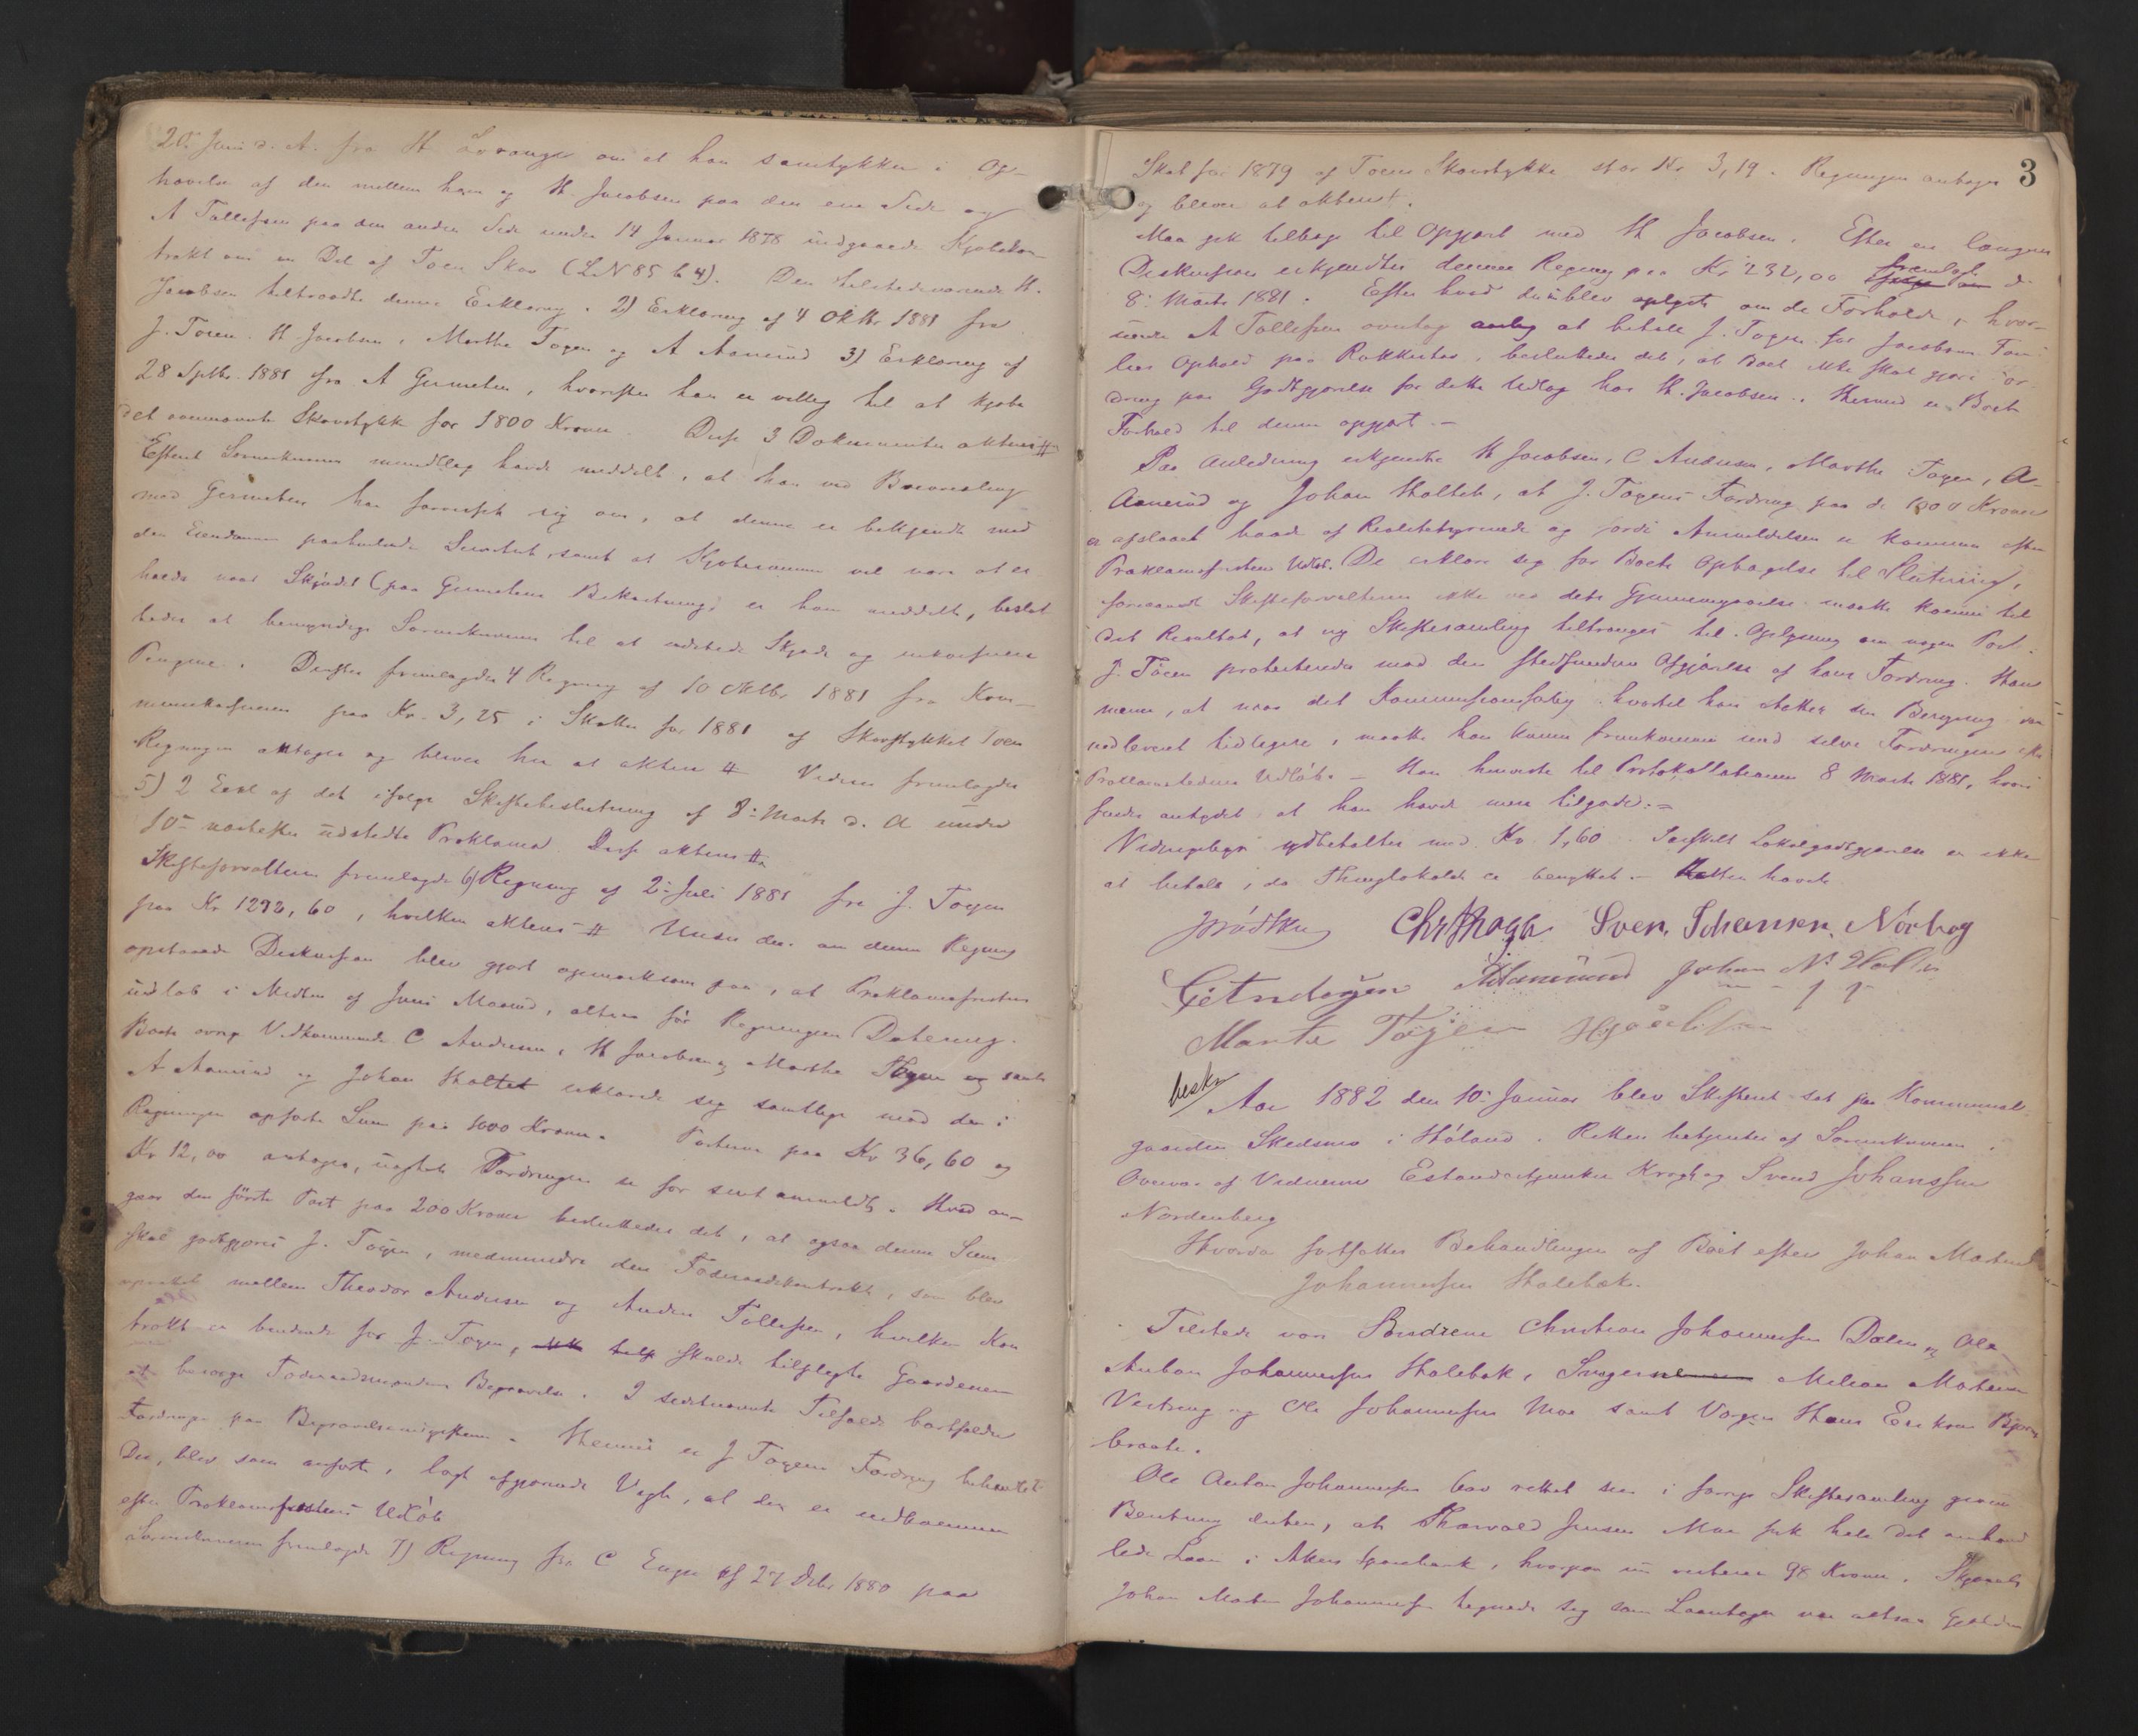 20 Juni d. A. fra H om at han samtykker i Op-
hævelse af den mellem ham og H Jacobsen paa den ene Side og
A Tollefsen paa den anden Side under 14 Januar 1878 indgaaede Kjøbekon-
trakt om en Del af Toen Skov (LN 85 b 4). Den tilstedeværende H.
Jacobsen tiltraadte denne Erklæring. 2) Erklæring af 4 Oktbr 1881 fra
J. Toien. H Jacobsen, Marthe Togen og A Aamund 3) Erklæring af
28 Septbr. 1881 fra A Germeten, hvorefter han er villig til at kjøbe
det ovennævnte Skovstykke for 1800 Kroner. Disse 3 Dokumenter akteres #
Efterat Sorenskriveren mundtlig havde meddelt, at han ved
med Germeten har forvisset sig om, at denne er bekjendt med
den Eiendommen paahvilende Servitut, samt at Kjøbesummen vil være at er
holde naar Skjødet (paa Germetens Bekostning) er ham meddelt, beslut
tedes at bemyndige Sorenskriveren til at udstede Skjøde og indkassere
Pengene. Derefter fremlagdes 4 Regning af 10 Oktbr 1881 fra Kom-
munekassereren paa Kr. 3,25 i Skatter for 1881 af Skovstykket Toen
Regningen antoges og bliver her at aktere # Videre fremlagdes
5) 2 Exl af det ifølge Skiftebeslutning af 8de Marts d. A under
10de næstefter udstedte Proklama. Disse akteres #.
Skifteforvalteren fremlagde 6) Regning af 2. Juli 1881 fra J. Togen
paa Kr 1292,60, hvilken akteres # Under den om denne Regning
opstaaede Diskussion blev gjort opmærksom paa, at Proklamafristen
udløb i Midten af Juni Maaned, altsaa før Regningens Datering.
Boets øvrige Vedkommende C Andersen, H Jacobsen, Marthe Togen og samt
A Aamund og Johan Holtet erklærede sig samtlige mod den i
Regningen opførte Sum paa 1000 Kroner. Posterne paa Kr 36,60 og
Kr 12,00 antoges, uagtet Fordringen er for sent anmeldt. Hvad an-
gaar den første Post paa 200 Kroner besluttedes det, at ogsaa denne Sum
skal godtgjøres J. Togen, medmindre den Føderaadskontrakt, som blev
oprettet mellem Theodor Andersen og Anders Tollefsen, hvilken Kon
trakt er bindende for J. Togen, skulde tilpligte Gaardeieren
at besørge Føderaadsmandens Begravelse. I sidstnævnte Tilfælde bortfalder
Fordringen paa Begravelsesomkostn. Hermed er J Togens Fordring behandlet
Der, blev som anført, lagt afgjørende Vægt, at den er indkommen
efter Proklamafristens Udløb
Sorenskriveren fremlagde 7) Regning fra C Enger af 27 Debr 1880 paa
3
Skat for 1879 af Toens Skovstykke stor Kr 3,19. Regningen antoges
og bliver at aktere #.
Maa gik tilbage til Opgjøret med H Jacobsen. Efter en længere
Diskussion erkjendtes dennes Regning paa Kr 232,00 fremlagt d.
8de Marts 1881. Efter hvad der blev oplyst om de Forholde, i hvor-
under A Tollefsen overtog at betale J. Togen for Jacobsens Fami
lies Ophold paa Rakkestad, besluttedes det, at Boet ikke skal gjøre For
dring paa Godtgjørelse for dette Udlæg hos H. Jacobsen. Hermed er Boets
Forhold til denne opgjort. -
Paa Anledning erkjendte H Jacobsen, C Andersen, Marthe Togen, A
Aamund og Johan Holtet, at J. Togens Fordring paa de 1000 Kroner
er afslaaet baade af Realitetsgrunde og fordi Anmeldelsen er kommen efter
Proklamafristens Udløb. De erklærer sig for Boets Optagelse til Slutning,
forsaavidt Skifteforvalteren ikke ved dets Gjennemgaaelse maatte komme til
det Resultat, at ny Skiftesamling tiltrænges til Oplysning om nogen Post.
J. Toien protesterede mod den stedfundne Afgjørelse af hans Fordring. Han
mener, at naar det Kommissionsforlig, hvortil han støtter sin Beregning var
udleveret tidligere, maatte han kunne fremkomme med selve Fordringen efter
Proklamatidens Udløb. - Han henviste til Protokollationen 8 Marts 1881, hvor
findes antydet, at han havde mere tilgode. -
Vidnepenge udbetaltes med Kr. 1,60. Særskilt Lokalgodtgjørelse er ikke
at betale, da Thinglokalet er benyttet. - Retten hævet
Chr Kragh Sven, Johansen, Norbeg
AAamund Johan N. Holtet
Marte Töjen HJacobsen
beskr
Aar 1882 den 10de Januar blev Skifteret sat paa Kommunal
gaarden Skedsmo i Høland. Retten betjentes af Sorenskriveren.
Overvær af Vidnerne Estandartjunker Kragh og Svend Johanssen
Nordenberg
Hvorda fortsattes Behandlingen af Boet efter Johan Martin
Johannessen Holebæk.
Tilstede var Brødrene Christian Johannessen Dalen og Ole
Anton Johannessen Holebæk, Svogerne Melian Mathisen
Vestreng og Ole Johannessen Moe samt Vergen Hans Eriksen Bjørn
braate.
Ole Anton Johannessen har rettet sin i forrige Skiftesamling givne
Beretning derhen, at Thorvald Jensen Moe fik hele det omhand
lede Laan i Akers Sparebank, hvorpaa nu resterer 98 Kroner. Skjøndt
Johan Martin Johannessen tegnede sig som Laantager var altsaa Gjælden